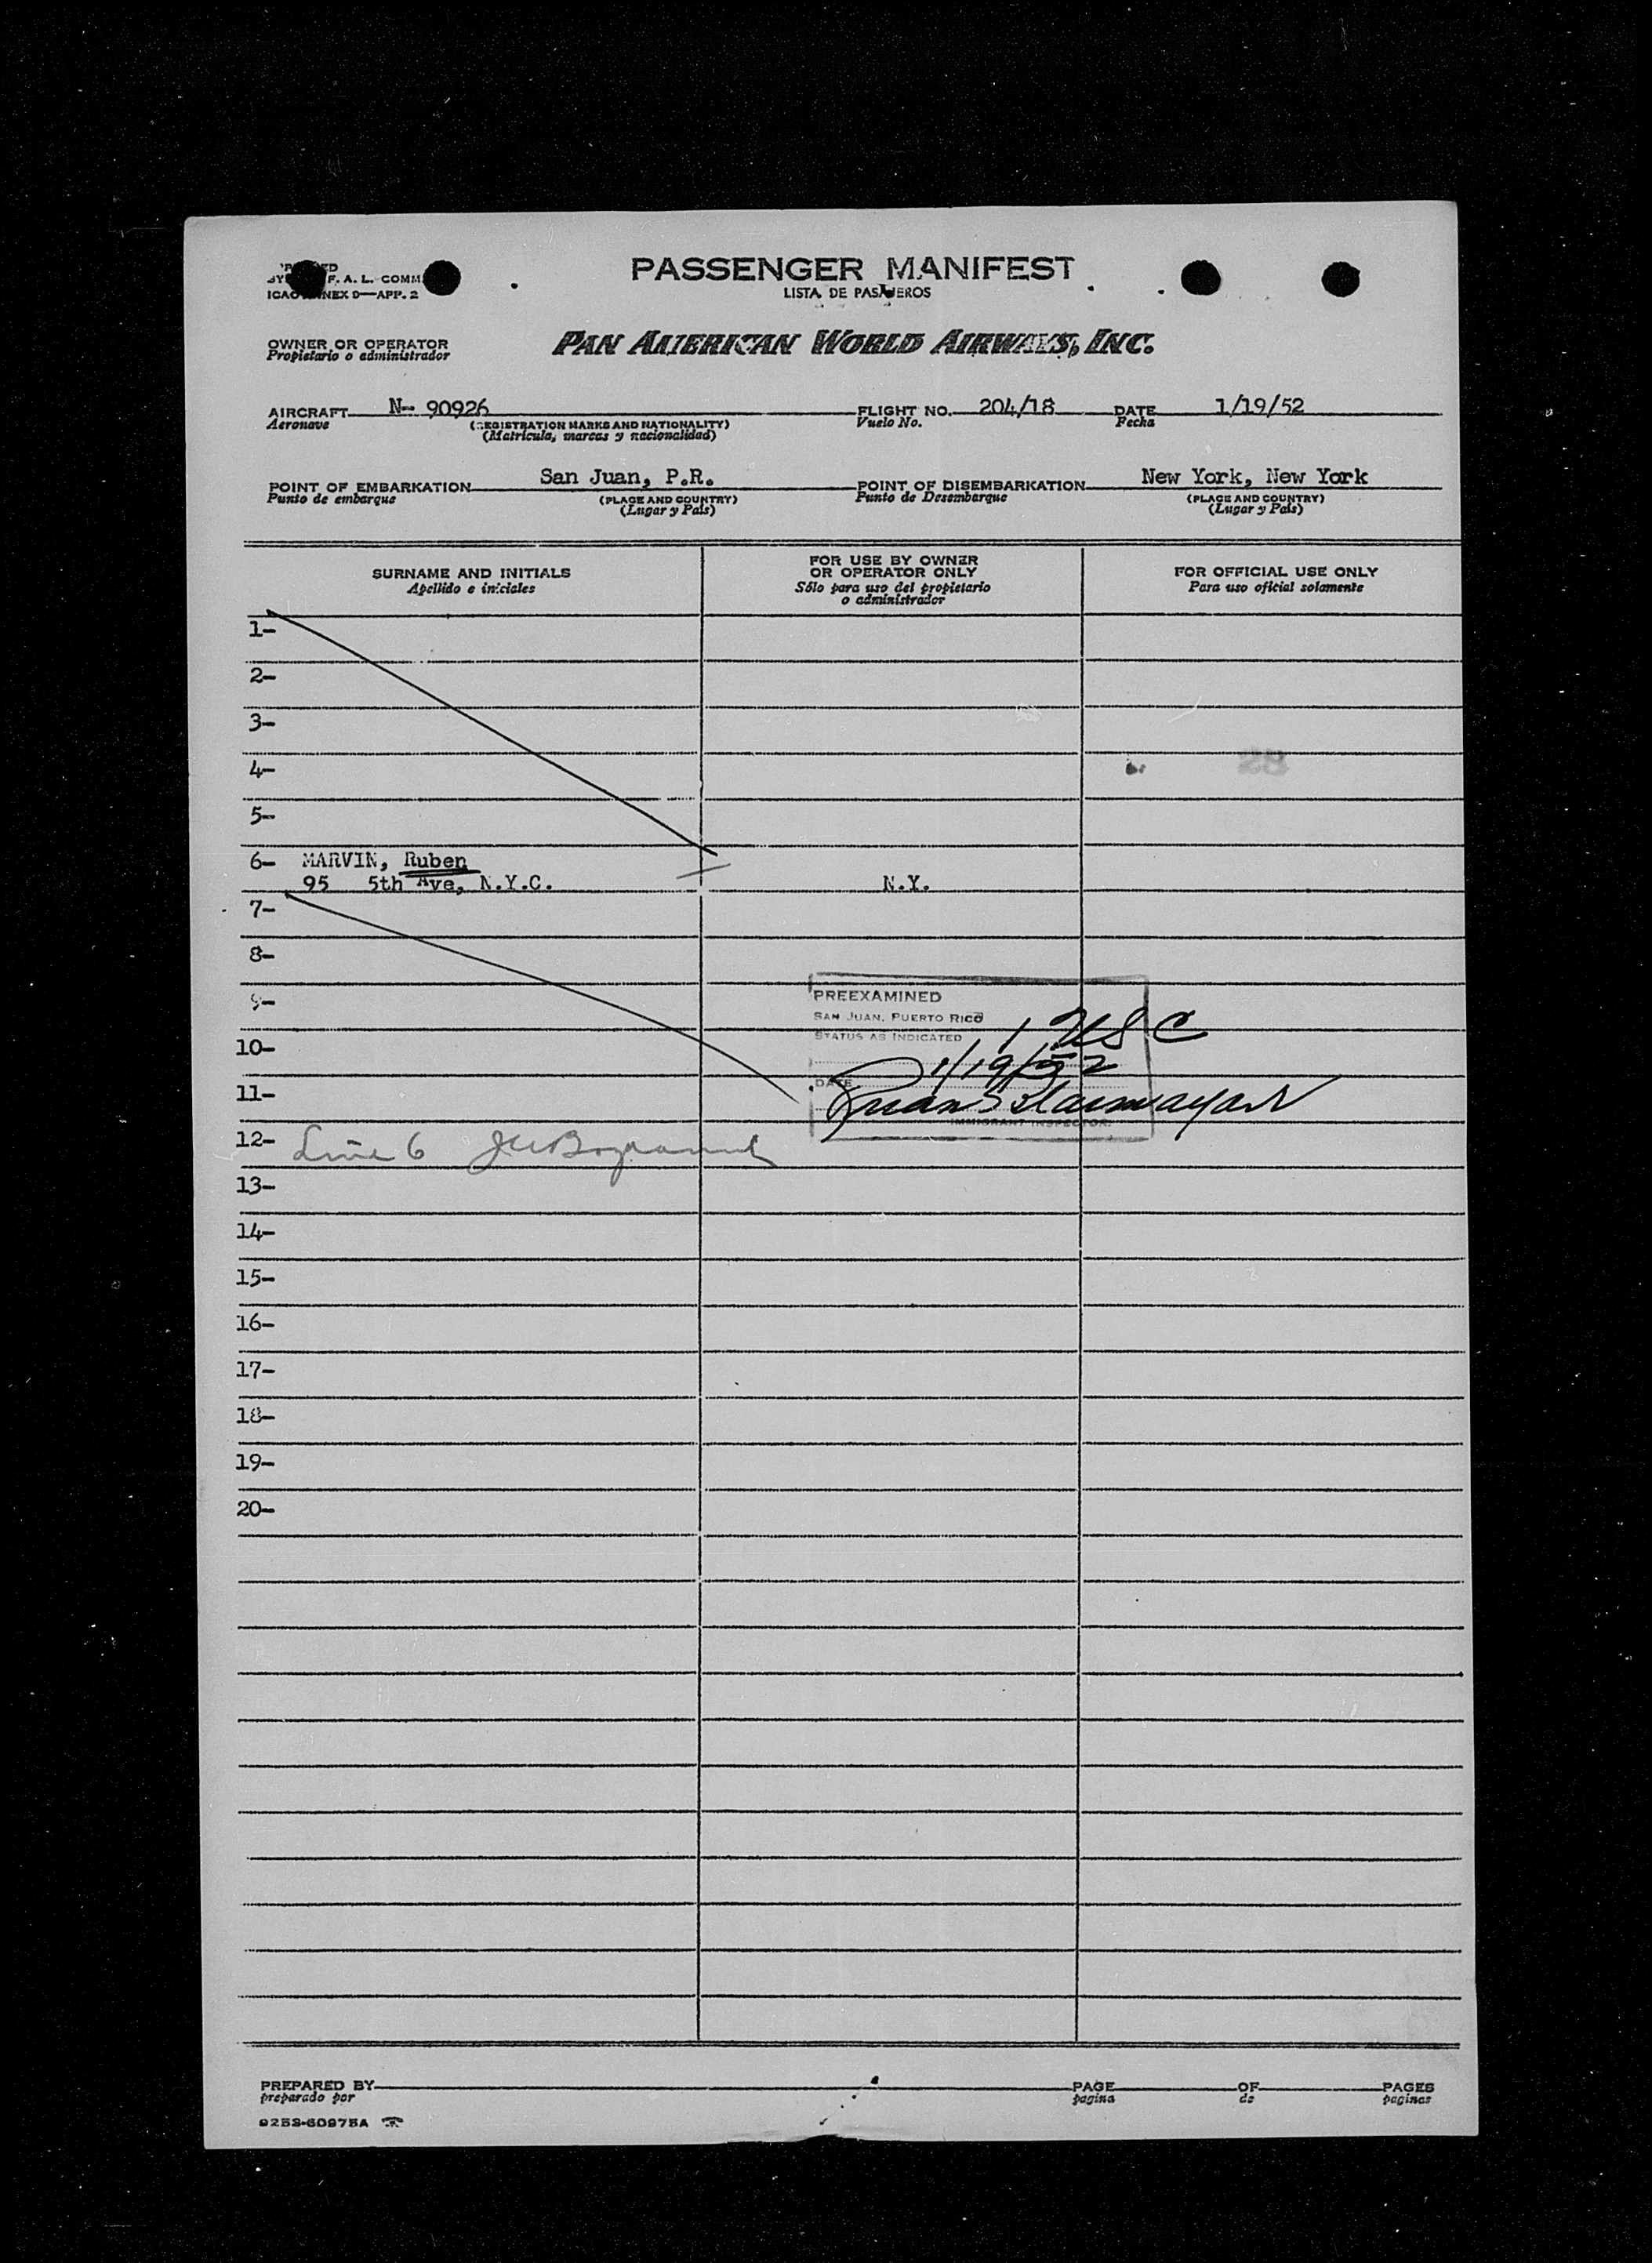 F. A. L. COMM
ICAO ANNEX 9—APP. 2
PASSENGER MANIFEST
LISTA DE PASAJEROS
OWNER OR OPERATOR
Propietario o administrador
PAN AMERICAN WORLD AIRWAYS, INC.
AIRCRAFT N- 90926 FLIGHT NO. 204/18 DATE 1/19/52
Aeronave (REGISTRATION MARKS AND NATIONALITY) Vuelo No. Fecha
(Matrícula, marcas y nacionalidad)
POINT OF EMBARKATION San Juan, P.R. POINT OF DISEMBARKATION New York, New York
Punto de embarque (PLACE AND COUNTRY) Punto de Desembarque (PLACE AND COUNTRY)
(Lugar y País) (Lugar y País)
SURNAME AND INITIALS
Apellido e iniciales
FOR USE BY OWNER
OR OPERATOR ONLY
Sólo para uso del propietario
o administrador
FOR OFFICIAL USE ONLY
Para uso oficial solamente
1-
2-
3-
4- 28
5-
6- MARVIN, Ruben
95 5th Ave, N.Y.C. N.Y.
7-
8-
9-
PREEXAMINED
SAN JUAN, PUERTO RICO
STATUS AS INDICATED 1 USC
10-
DATE 1/19/52
11-
IMMIGRANT INSPECTOR
12- Line 6
13-
14-
15-
16-
17-
18-
19-
20-
PREPARED BY PAGE OF PAGES
preparado por pagina de paginas
9253-60975A